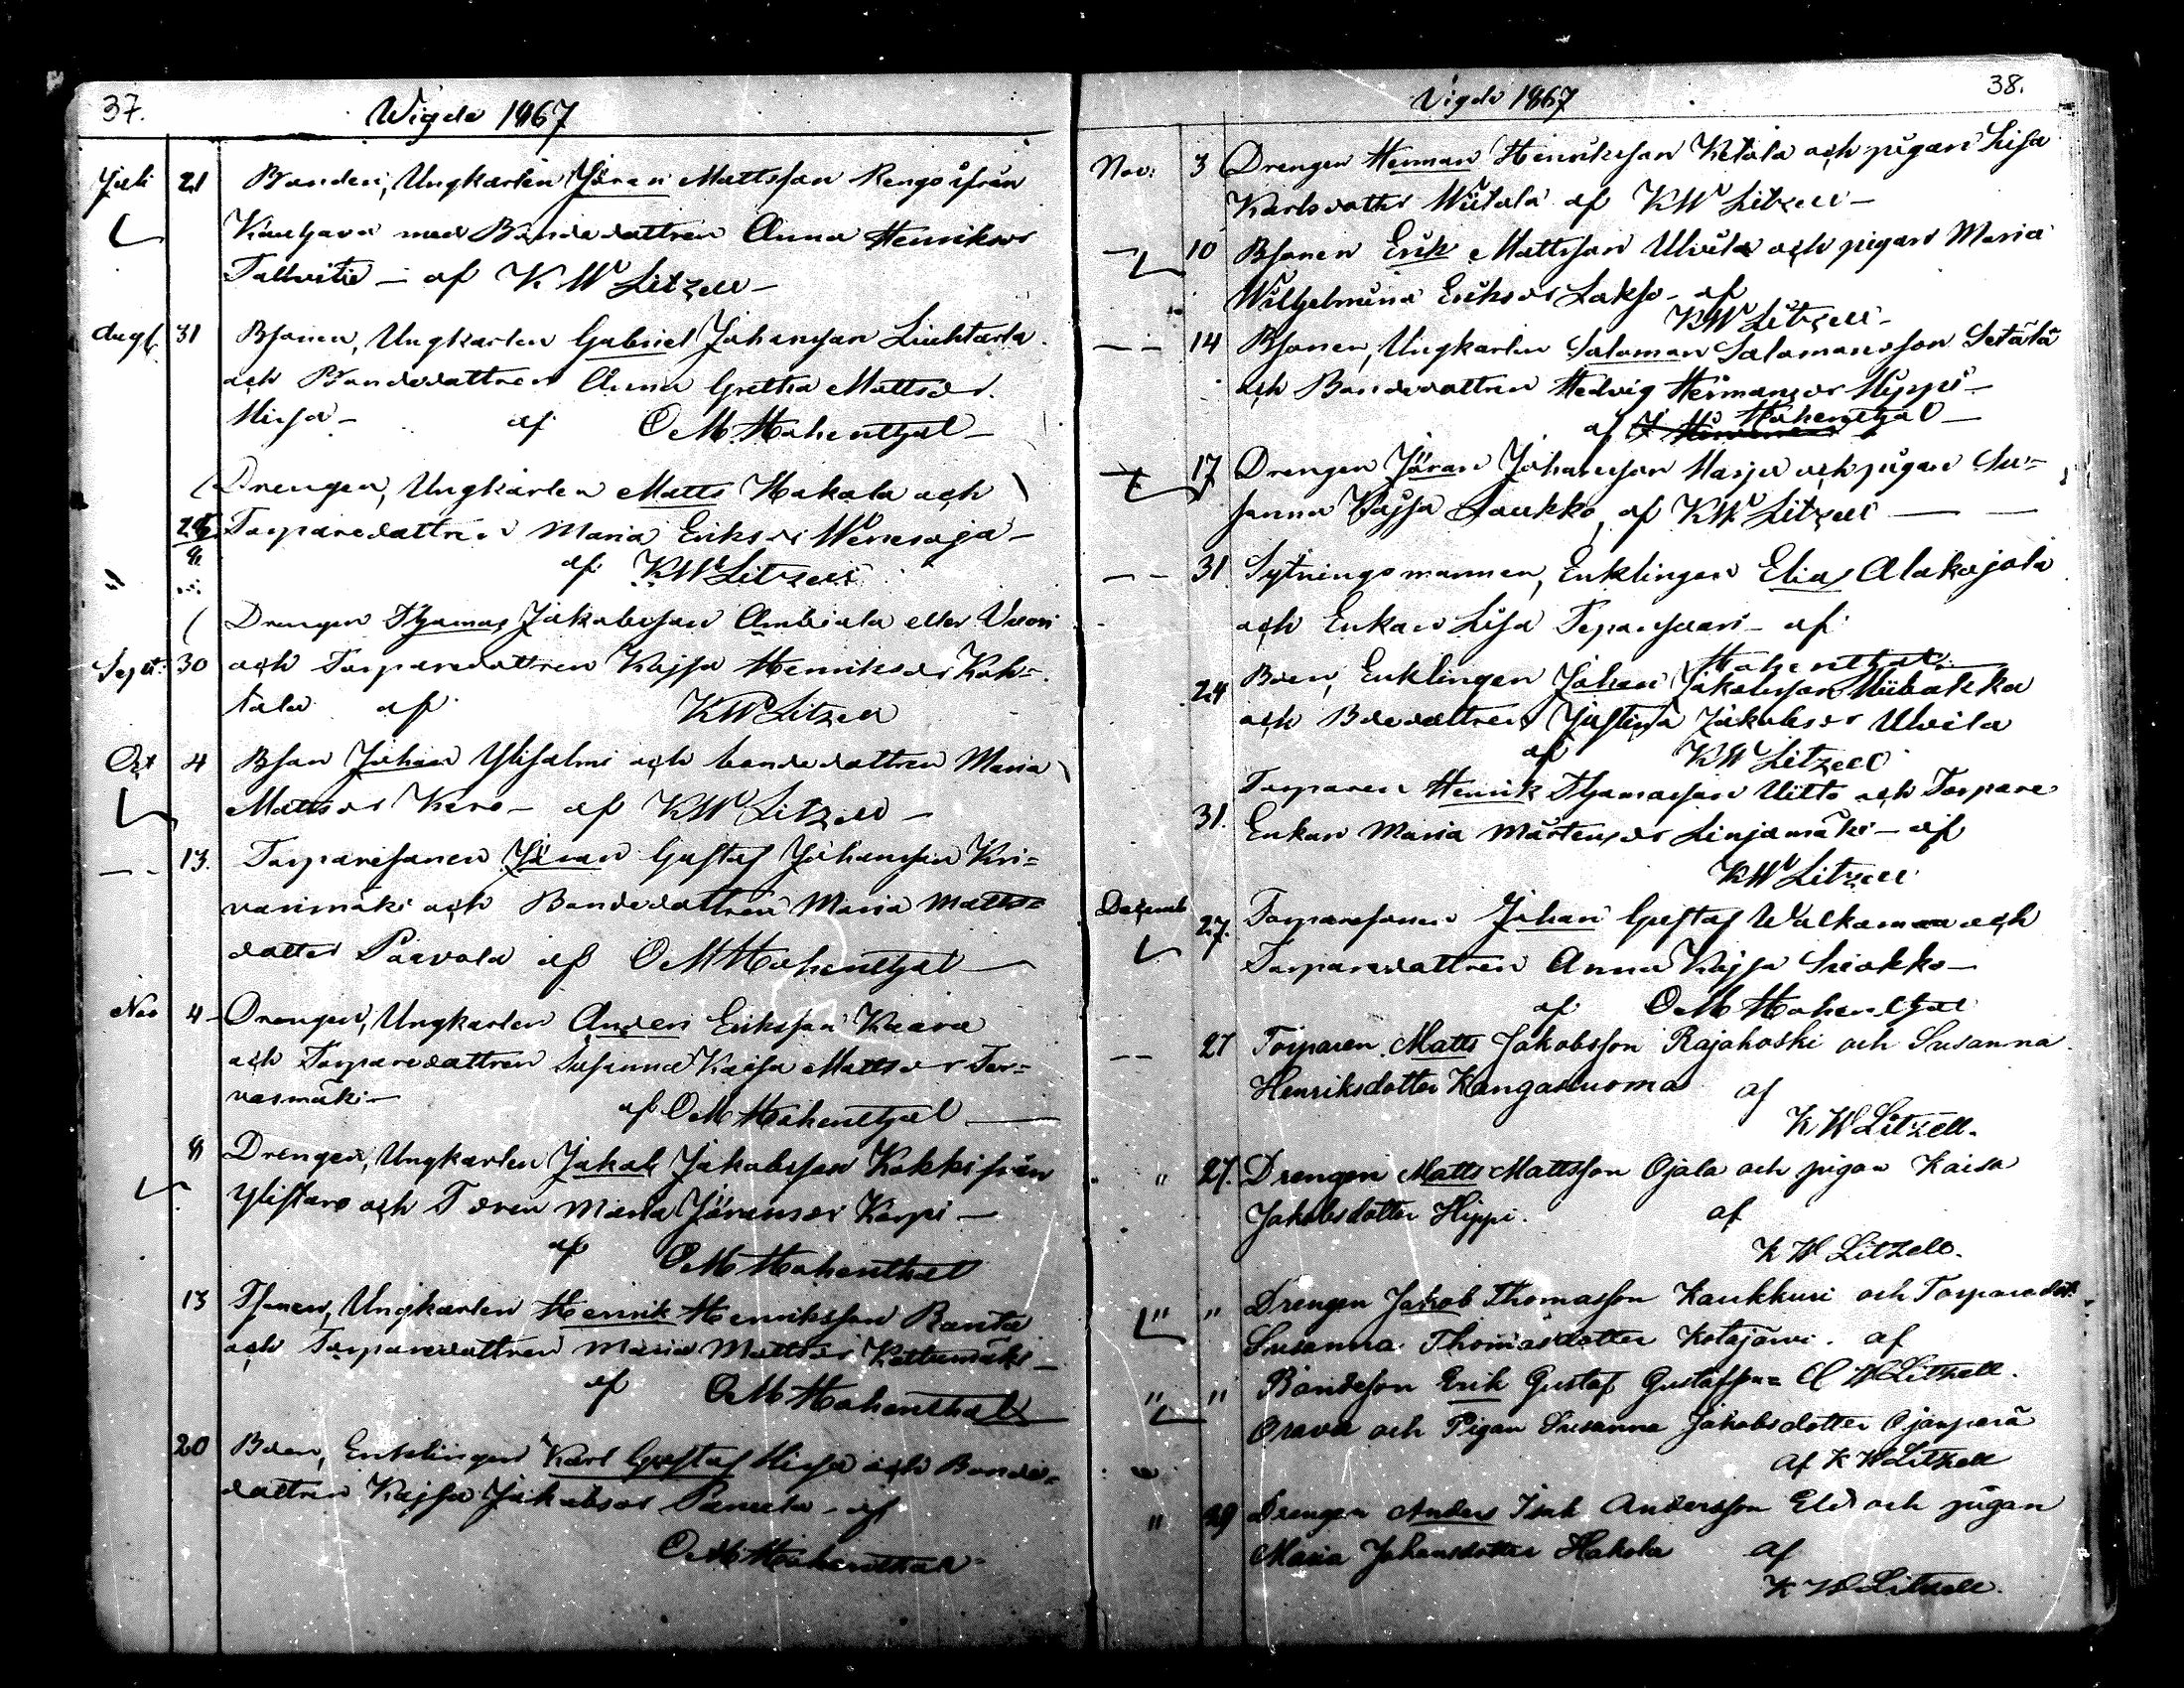 37.
Wigde 1867
Juli 21 Bonden, Ungkarlen Jöran Mattsson Rengo ifrån
Kauhava med Bondedottren Anna Henriksdr
Tallvitie – af KW Litzell –
Augs. 31 Bsonen, Ungkarlen Gabriel Johansson Liuhtarla
och Bondedottren Anna Gretha Mattsdr.
Hirsa – af OM Hohenthal –
Drengen, Ungkarlen Matts Hakala och
Torparedottren Maria Eriksdr
af KW Litzell
Drengen Thomas Jakobsson eller
Sept: 30 och Torparedottren Kajsa Henriksdr Koh=
tala af KW Litzell
Oct 4 Bson Johan Ylisalmi och bondedottren Maria
Mattsdr Kero – af KW Litzell –
13. Torparesonen Jöran Gustaf Johansson Kri=
varimäki och Bondedottren Maria Matts=
dotter Paavola af OM Hohenthal
Nov 4 – Drengen, Ungkarlen Anders Eriksson Kaara
och Torparedottren Susanna Kaisa Mattsdr Ter=
vasmäki – af OM Hohenthal
8 Drengen, Ungkarlen Jakob Jakobsson Kokki från
Ylistaro och T dren Maria Jöransdr Karpi –
af OM Hohenthal
13 Tsonen, Ungkarlen Henrik Henriksson Ranta
och Torparedottren Maria Mattsdr Kattumäki –
af OM Hohenthal
20 Bden, Enklingen Karl Gustaf Hirsa och Bonde=
dottren Kajsa Jakobsdr Panula – af
OM Hohenthal
38.
Vigde 1867
Nov: 3 Drengen Herman Henriksson Ketola och pigan Lisa
Karlsdotter Wiitala af KW Litzell –
10 Bsonen Erik Mattsson Ulvila och pigan Maria
Wilhelmina Eriksdr Lakso – af
KW Litzell –
14 Bsonen, Ungkarlen Salomon Salomonsson Setälä
och Bondedottren Hedvig Hermansdr Hyppi –
af Hohenthal –
17 Drengen Jöran Johansson Harju och pigan Su=
sanna Kajsa Laukko, af KW Litzell –
31. Sytningsmannen, Enklingen Elias Alakojola
och Enkan Lisa Teponsaari – af
Hohenthal
24 Bden, Enklingen Johan Jakobsson Wiibakka
och Bdedottren Justina Jakobsdr Ulvila
af KW Litzell
Torparen Henrik Thomasson Uitto och Torpare
31. Enkan Maria Mårtensdr Linjamäki – af
KW Litzell
Decemb 27. Torparesonen Johan Gustaf Walkama och
Torparedottren Anna Kajsa Luokko –
af OM Hohenthal
27 Torparen Matts Jakobsson Rajakoski och Susanna
Henriksdotter Kangasluoma af
K W Litzell.
" 27. Drengen Matts Mattsson Ojala och pigan Kaisa
Jakobsdotter Hippi. af
K W Litzell.
" " Drengen Jakob Thomasson Kaukkuri och Torparedot.
Susanna Thomasdotter Kotajärvi. af
" " Bondeson Erik Gustaf Gustafsson= W Litzell.
Orava och Pigan Susanna Jakobsdotter Ojanperä
af K W Litzell
" 29 Drengen Anders Isak Andersson Eld och pigan
Maria Johansdotter Hakola af
K W Litzell.